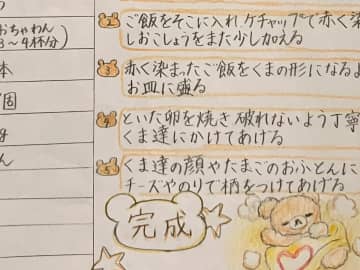 おちゃわん
3～4杯分)
本
個
ん
2 ご飯をそこに入れ、ケチャップで赤く染
しおこしょうをまた少し加える
3 赤く染まったご飯をくまの形になるよ
お皿に盛る
4 といた卵を焼き破れないよう丁寧
くま達にかけてあげる
5 くま達の顔やたまごのおふとんに
チーズやのりで柄をつけてあげる
完成